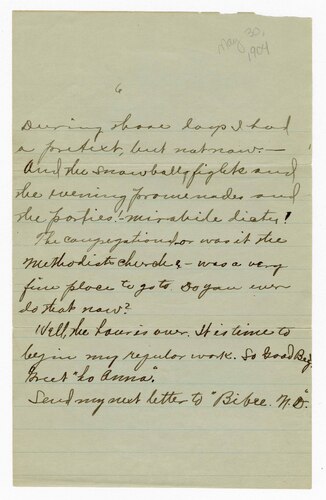 May 30,
1904
6
During those days I had
a pretext, but not now. —
And the snowball fights and
the evening promenades and
the parties! - mirabile dictu!
The congregational or was it the
Methodist church - was a very
fine place to go to. Do you ever
do that now?
Well, the hour is over. It is time to
begin my regular work. So Good Bye.
Greet "Lo Anna".
Send my next letter to "Bibee. N.D".